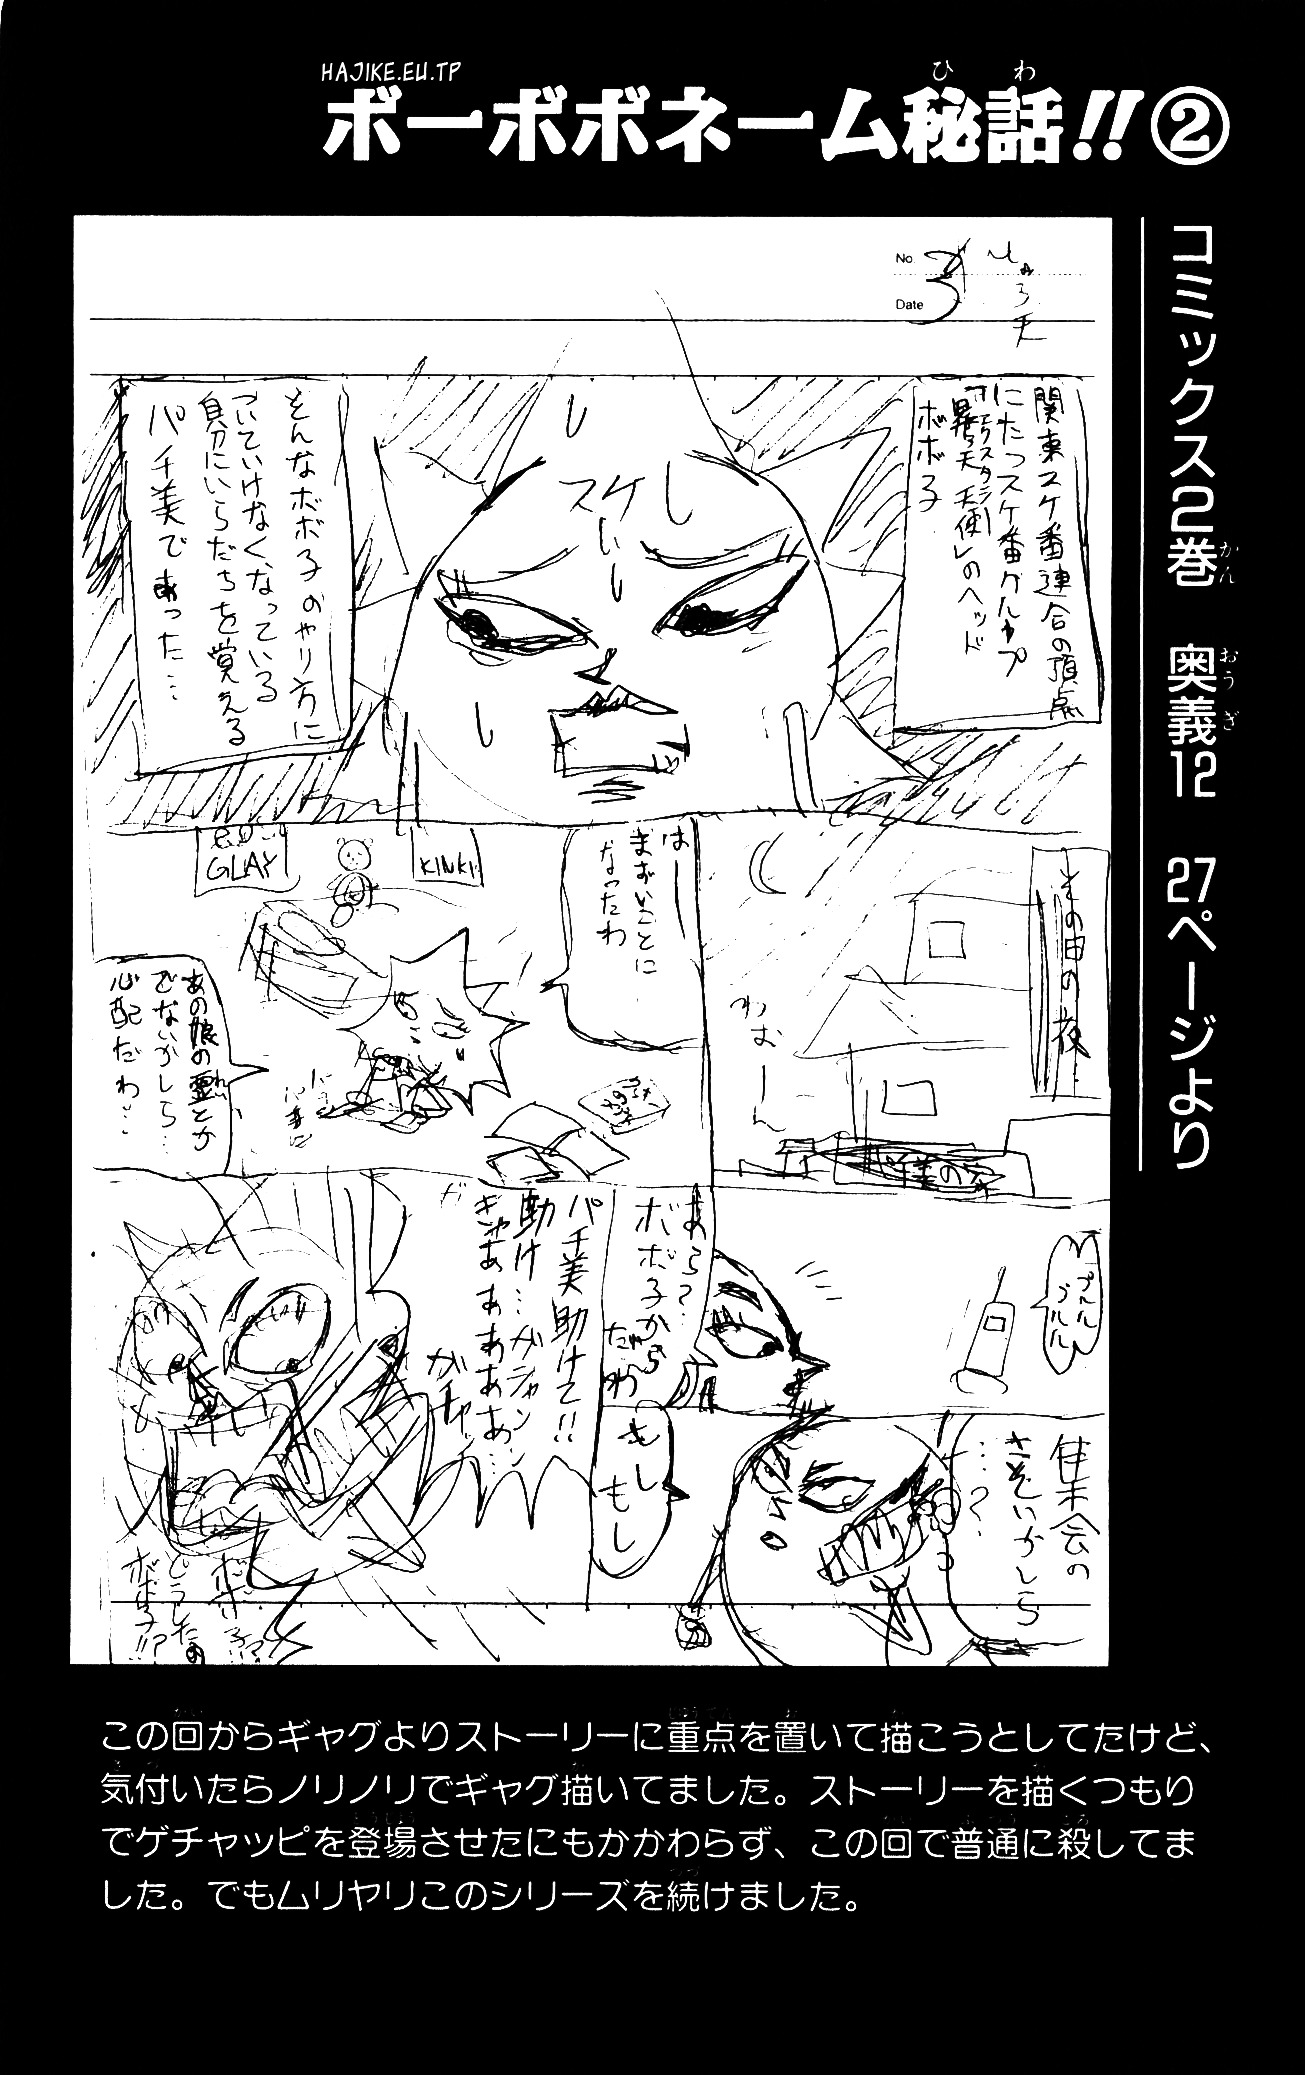 HAJIKE.EU.TP
ひわ
ボーボボネーム秘話!!②
コミックス2巻 奥義12 27ページより
かん
おうぎ
No.
3
Date
関東スケ番連合の頂点
にたつスケ番グループ
天使レのヘッド
ボボ子
スケ
そんなボボ子のやり方に
ついていけなくなっている
自分にいらだちを覚える
パチ美であった…
その日の夜
わおーん
は――
まずいことに
なったわ
GLAY
KINKI
あの娘の霊とか
でないかしら…
心配だわ…
プルル
プルルル
あら?
ボボ子から
だわ
集会の
さそいかしら
…?
もし
もし
パチ美助けて!!
助け…ガシャン…
ぎゃあああああ…
ガチャ
どうしたの
ボボ子!!?
この回からギャグよりストーリーに重点を置いて描こうとしてたけど、
気付いたらノリノリでギャグ描いてました。ストーリーを描くつもり
でゲチャッピを登場させたにもかかわらず、この回で普通に殺してま
した。でもムリヤリこのシリーズを続けました。